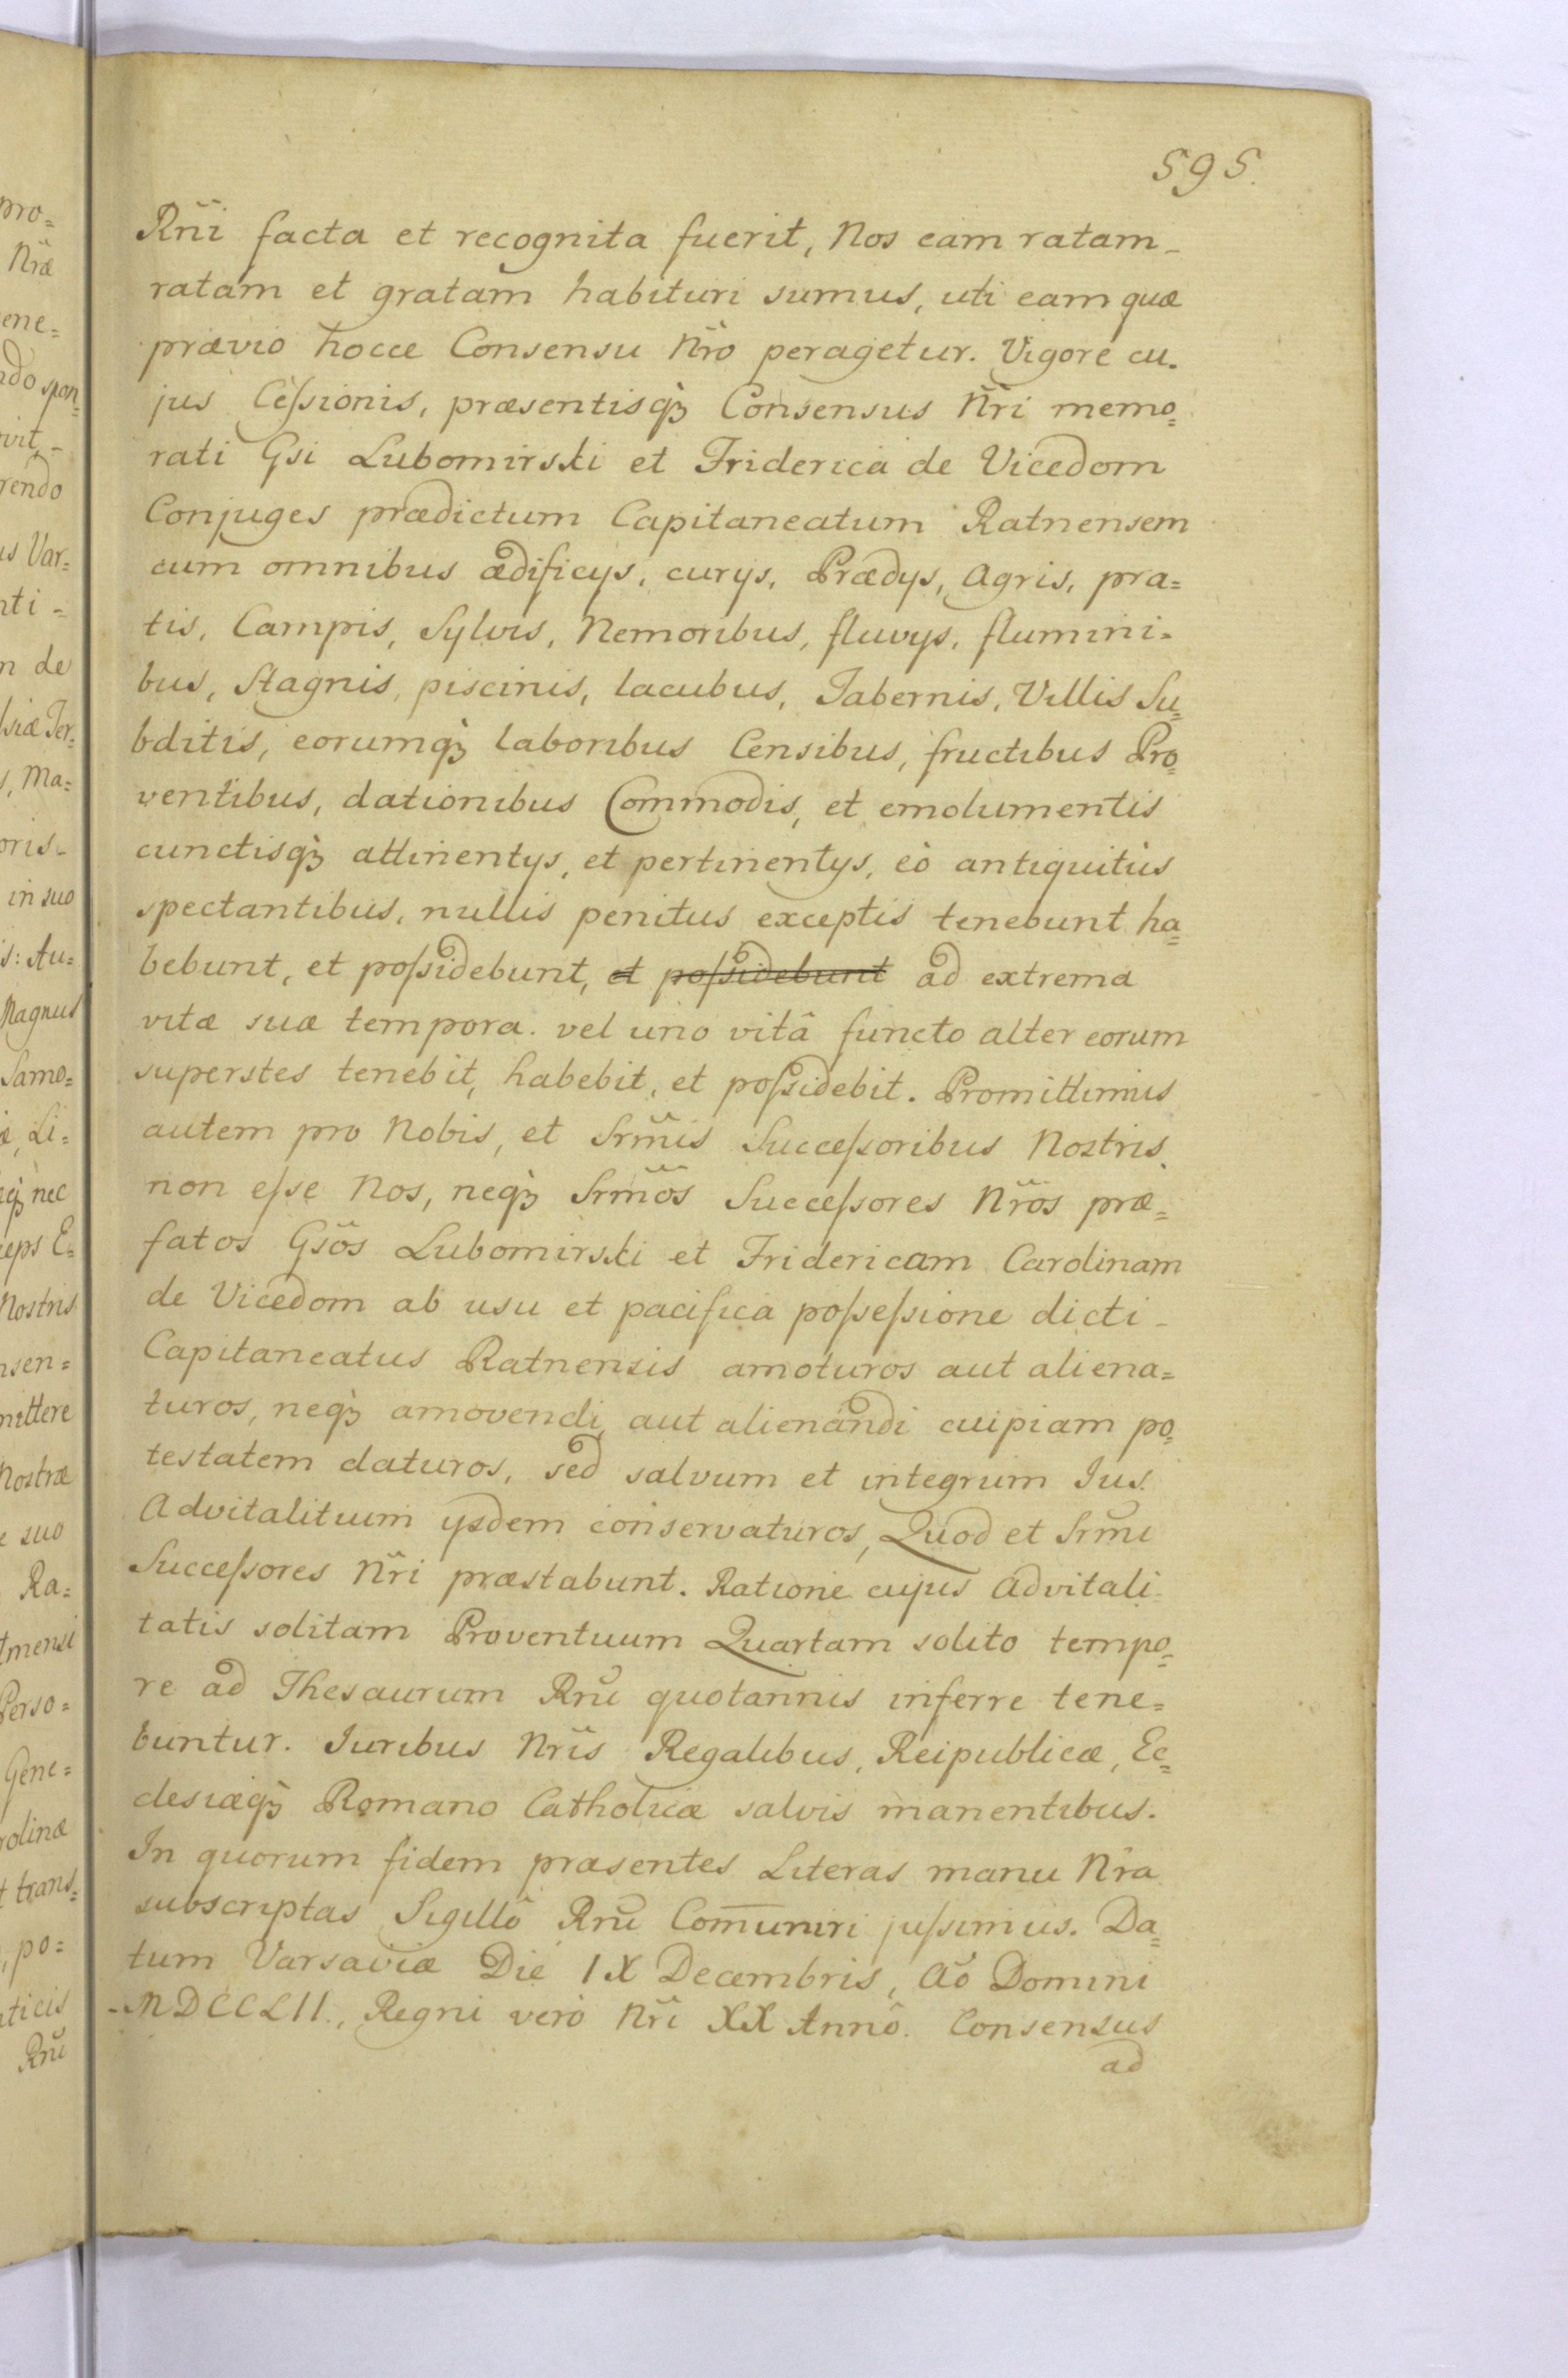 595.
Rñi facta et recognita fuerit, Nos eam ratam-
ratam et gratam habituri sumus, uti eam quæ
prævio hocce Consensu Nr̃o peragetur. Vigore cu-
jus Ceſsionis, præsentisqꝫ Consensus Nr̃i memo=
rati Gsi Lubomirski et Friderica de Vicedom
Conjuges prædictum Capitaneatum Ratnensem
cum omnibus ædificijs, curijs, Prædijs, Agris, pra=
tis, Campis, Sylvis, Nemoribus, fluvijs, flumini=
bus, Stagnis, piscinis, lacubus, Tabernis, Villis Su=
bditis, eorumqꝫ laboribus Censibus, fructibus Pro=
ventibus, dationibus Commodis, et emolumentis
cunctisqꝫ attinentijs, et pertinentijs, eò antiquitùs
spectantibus, nullis penitus exceptis tenebunt ha=
bebunt, et poſsidebunt, et poſsidebunt ad extrema
vitæ suæ tempora. vel uno vitâ functo alter eorum
superstes tenebit, habebit, et poſsidebit. Promittimus
autem pro Nobis, et Srm̃is Succeſsoribus Nostris
non eſse Nos, neqꝫ Srm̃os Succeſsores Nr̃os præ=
fatos Gsõs Lubomirski et Fridericam Carolinam
de Vicedom ab usu et pacifica poſseſsione dicti -
Capitaneatus Ratnensis amoturos aut aliena=
turos, neqꝫ amovendi aut alienandi cuipiam po=
testatem daturos, sed salvum et integrum Ius.
Advitalituum ijsdem conservaturos, Quod et Srm̃i
Succeſsores Nr̃i præstabunt. Ratione cujus Advitali
tatis solitam Proventuum Quartam solito tempo=
re ad Thesaurum Rñi quotannis inferre tene=
buntur. Iuribus Nr̃is Regalibus, Reipublicæ, Ec=
clesiæqꝫ Romano Catholicæ salvis manentibus.
In quorum fidem præsentes Literas manu Nr̃a
subscriptas Sigillô Rñi Com̃uniri juſsimus. Da=
tum Varsaviæ Die IX Decembris, Aõ Domini
-MDCCLII., Regni verò Nr̃i XX Annô. Consensus
ad
pro=
Nr̃æ
ene=
ndo spon=
vit,-
rendo
us Var=
nti -
n de
lsiæ Ter=
s, Ma=
oris-
in suo
is: Au=
Magnus
Samo=
æ, Li=
eqꝫ nec
ceps E=
Nostris
nsen=
mittere
Nostræ
e suo
Ra=
tmensi
Perso=
Gene=
rolinæ
t trans=
, po=
aticis
Rñi